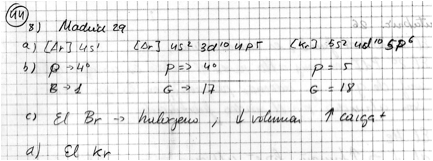 44
3) Madrid 29
a) [Ar] 4s¹ [Ar] 4s² 3d¹⁰ 4p⁵ [Kr] 5s² 4d¹⁰ 5p⁶
b) P → 4º P => 4º P = 5
B → 1 G → 17 G = 18
c) El Br → halogeno, ↓ volumen ↑ carga +
d) El Kr